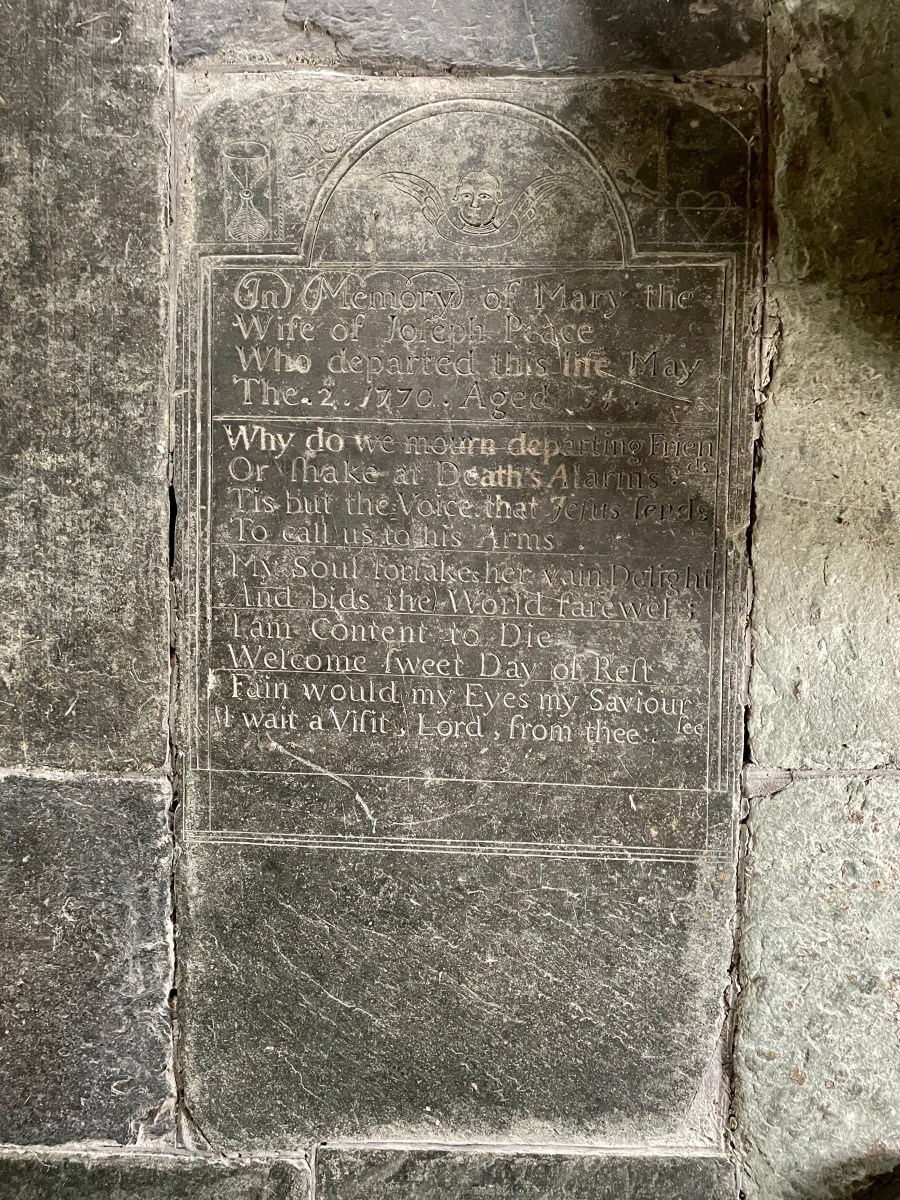 In Memory of Mary the
Wife of Joſeph Peace
Who departed this life May
The 2.d 1770. Aged 54
Why do we mourn departing Frien
ds
Or ſhake at Death's Alarms
Tis but the Voice that Jeſus ſends
To call us to his Arms
My Soul forſakes her vain Delight
And bids the World farewel ;
I am Content to Die
Welcome ſweet Day of Reſt
Fain would my Eyes my Saviour
ſee
I wait a Viſit, Lord, from thee.